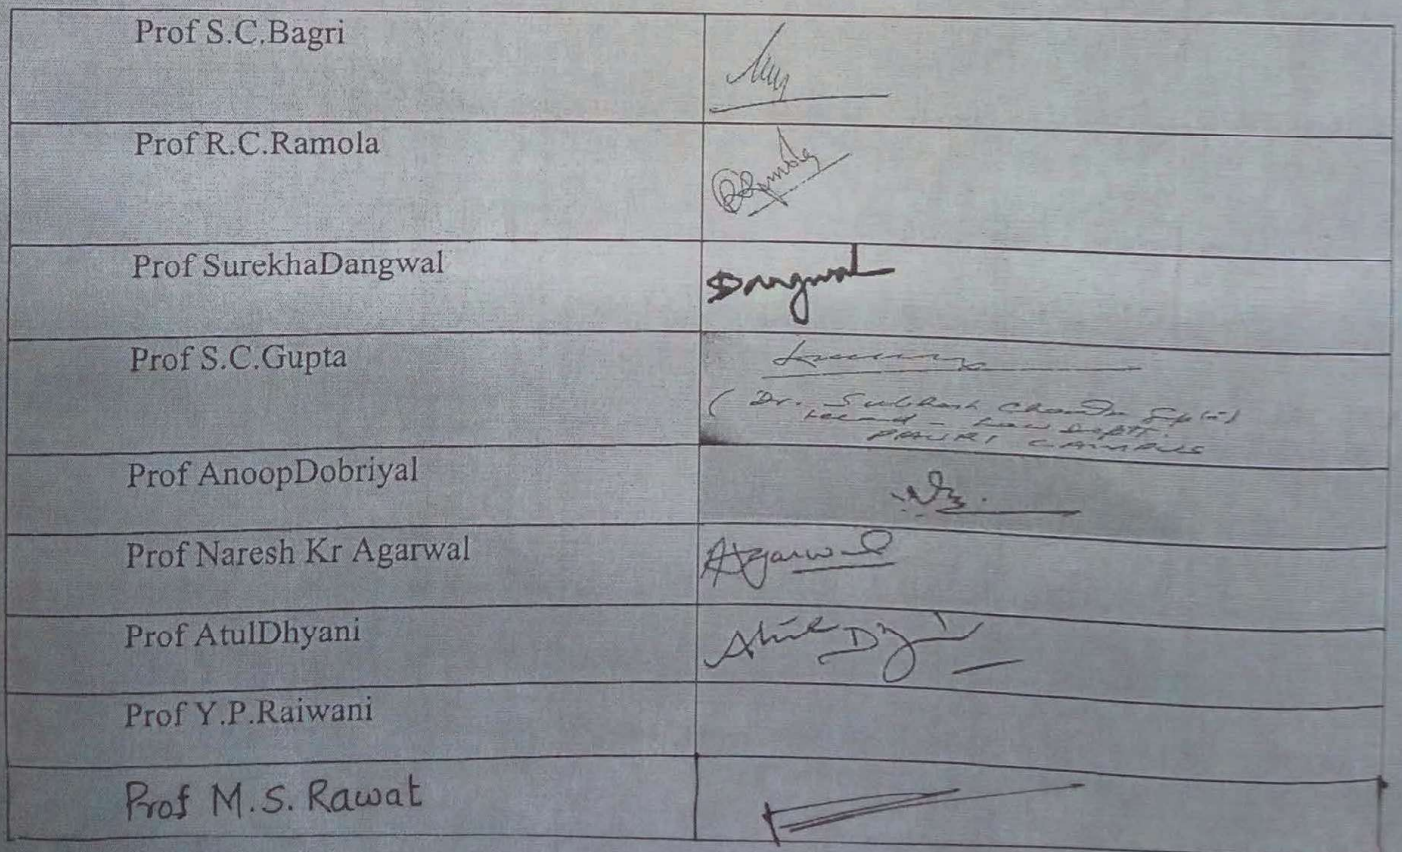 Prof S.C.Bagri
Prof R.C.Ramola
Ramola
Prof SurekhaDangwal
Dangwal
Prof S.C.Gupta
( Dr. Subhash Chandra Gupta)
Head - Law Deptt.
PAURI CAMPUS
Prof AnoopDobriyal
Prof Naresh Kr Agarwal
Agarwal
Prof AtulDhyani
Atul
Prof Y.P.Raiwani
Prof M.S. Rawat